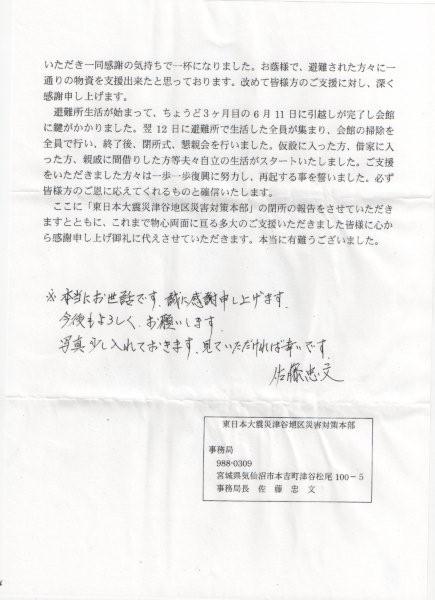 いただき一同感謝の気持ちで一杯になりました。お蔭様で、避難された方々に一
通りの物資を支援出来たと思っております。改めて皆様方のご支援に対し、深く
感謝申し上げます。
避難所生活が始まって、ちょうど３ヶ月目の６月１１日に引越しが完了し会館
に鍵がかかりました。翌１２日に避難所で生活した全員が集まり、会館の掃除を
全員で行い、終了後、閉所式、懇親会を行いました。仮設に入った方、借家に入
った方、親戚に間借りした方等夫々自立の生活がスタートいたしました。ご支援
をいただきました方々は一歩一歩復興に努力し、再起する事を誓いました。必ず
皆様方のご恩に応えてくれるものと確信いたします。
ここに「東日本大震災津谷地区災害対策本部」の閉所の報告をさせていただき
ますとともに、これまで物心両面に亘る多大のご支援いただきました皆様に心か
ら感謝申し上げ御礼に代えさせていただきます。本当に有難うございました。
※本当にお世話です。誠に感謝申し上げます。
今後もよろしく、お願いします。
写真少し入れておきます。見ていただければ幸いです。
佐藤忠文
東日本大震災津谷地区災害対策本部
事務局
988-0309
宮城県気仙沼市本吉町津谷松尾１００－５
事務局長 佐 藤 忠 文